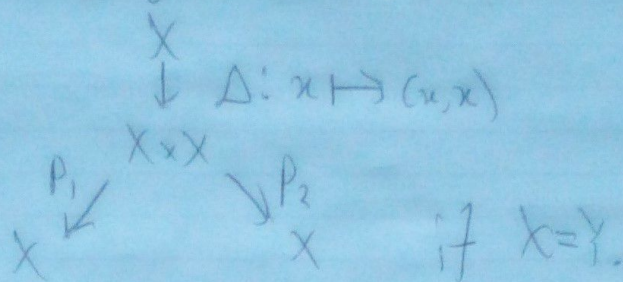 X
↓ Δ: x ↦ (x,x)
X × X
P₁ ↙ ↘ P₂
X X if X=Y.